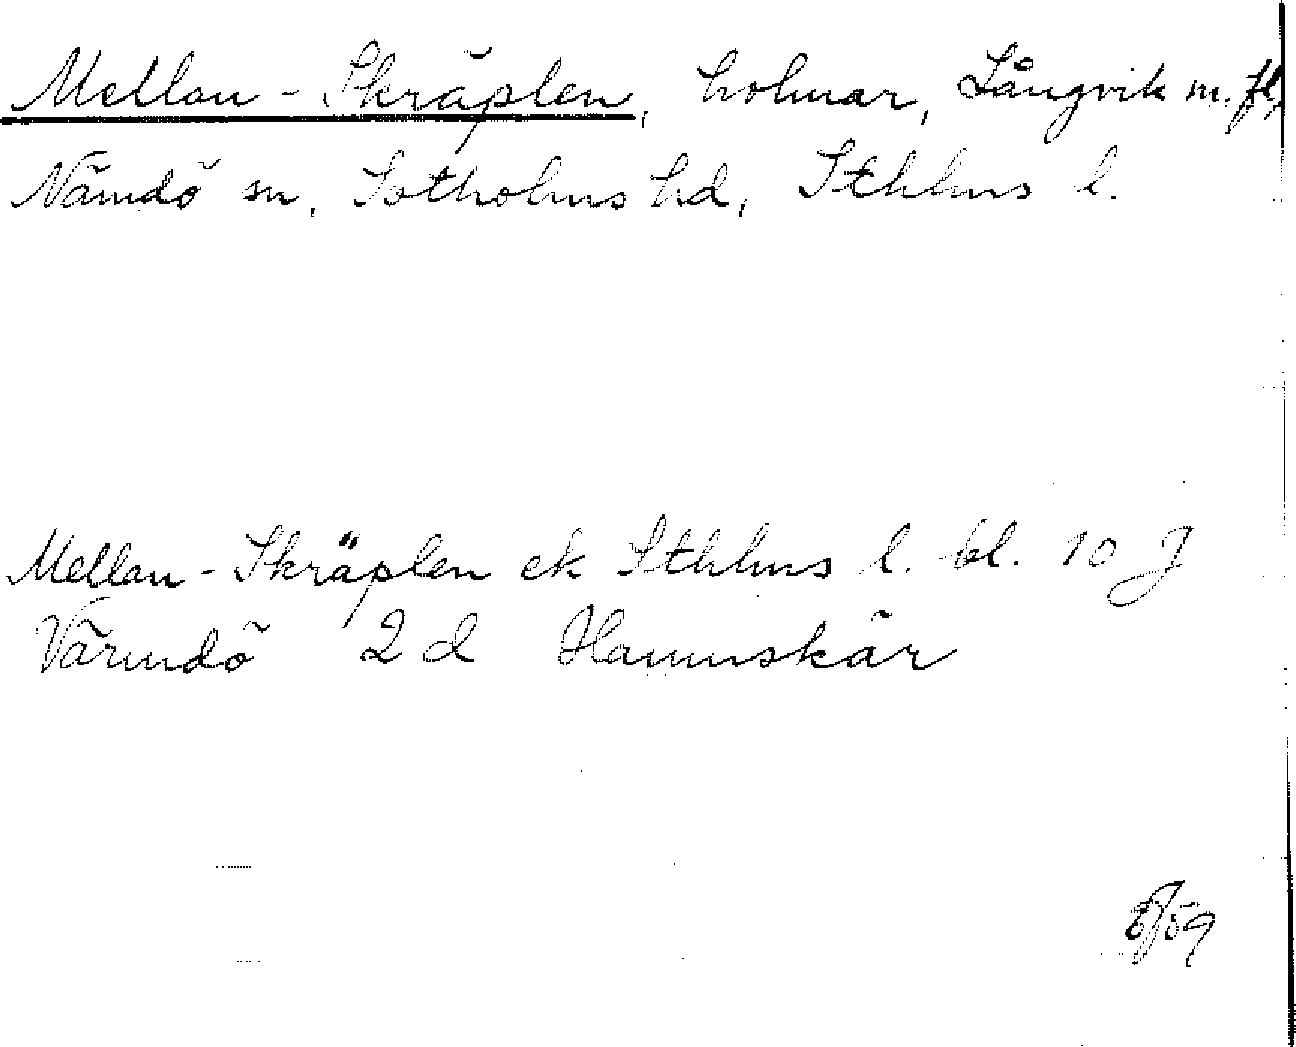 Mellan-Skräplen, holmar, Långvik m. fl,
Nämdö sn, Sotholms hd, Sthlms l.
Mellan-Skräplen ek Sthlms l. bl. 10 J
Värmdö 2 d Hamnskär